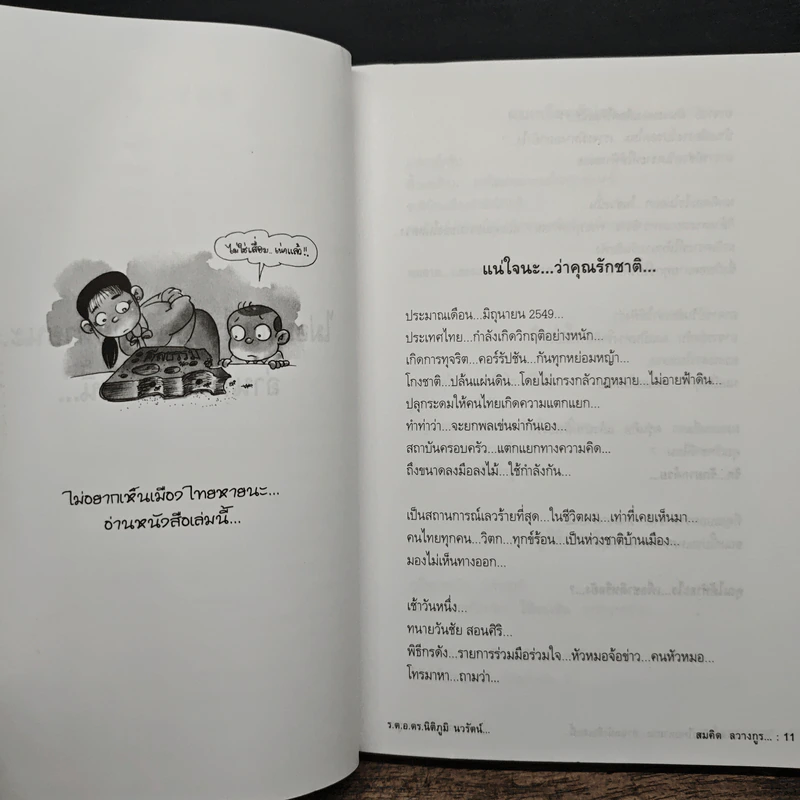 ไม่ใช่เสื่อม..เน่าแล้ว!!
ไม่อยากเห็นเมืองไทยหายนะ...
อ่านหนังสือเล่มนี้...
แน่ใจนะ...ว่าคุณรักชาติ...
ประมาณเดือน...มิถุนายน 2549...
ประเทศไทย...กำลังเกิดวิกฤติอย่างหนัก...
เกิดการทุจริต...คอร์รัปชัน...กันทุกหย่อมหญ้า...
โกงชาติ...ปล้นแผ่นดิน...โดยไม่เกรงกลัวกฎหมาย...ไม่อายฟ้าดิน...
ปลุกระดมให้คนไทยเกิดความแตกแยก...
ทำท่าว่า...จะยกพลเข่นฆ่ากันเอง...
สถาบันครอบครัว...แตกแยกทางความคิด...
ถึงขนาดลงมือลงไม้...ใช้กำลังกัน...
เป็นสถานการณ์เลวร้ายที่สุด...ในชีวิตผม...เท่าที่เคยเห็นมา...
คนไทยทุกคน...วิตก...ทุกข์ร้อน...เป็นห่วงชาติบ้านเมือง...
มองไม่เห็นทางออก...
เช้าวันหนึ่ง...
ทนายวันชัย สอนศิริ...
พิธีกรดัง...รายการร่วมมือร่วมใจ...หัวหมอจ้อข่าว...คนหัวหมอ...
โทรมาหา...ถามว่า...
ร.ต.อ.ดร.นิติภูมิ นวรัตน์...
สมคิด ลวางกูร... : 11